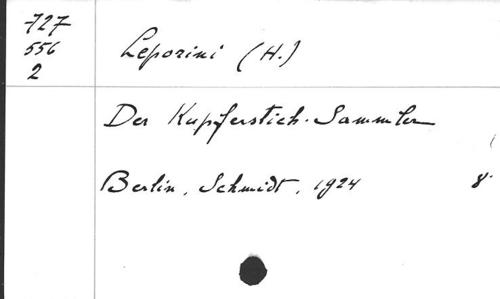 727
556
2
Leporini (H.)
Der Kupferstich-Sammler
Berlin, Schmidt, 1924 8°